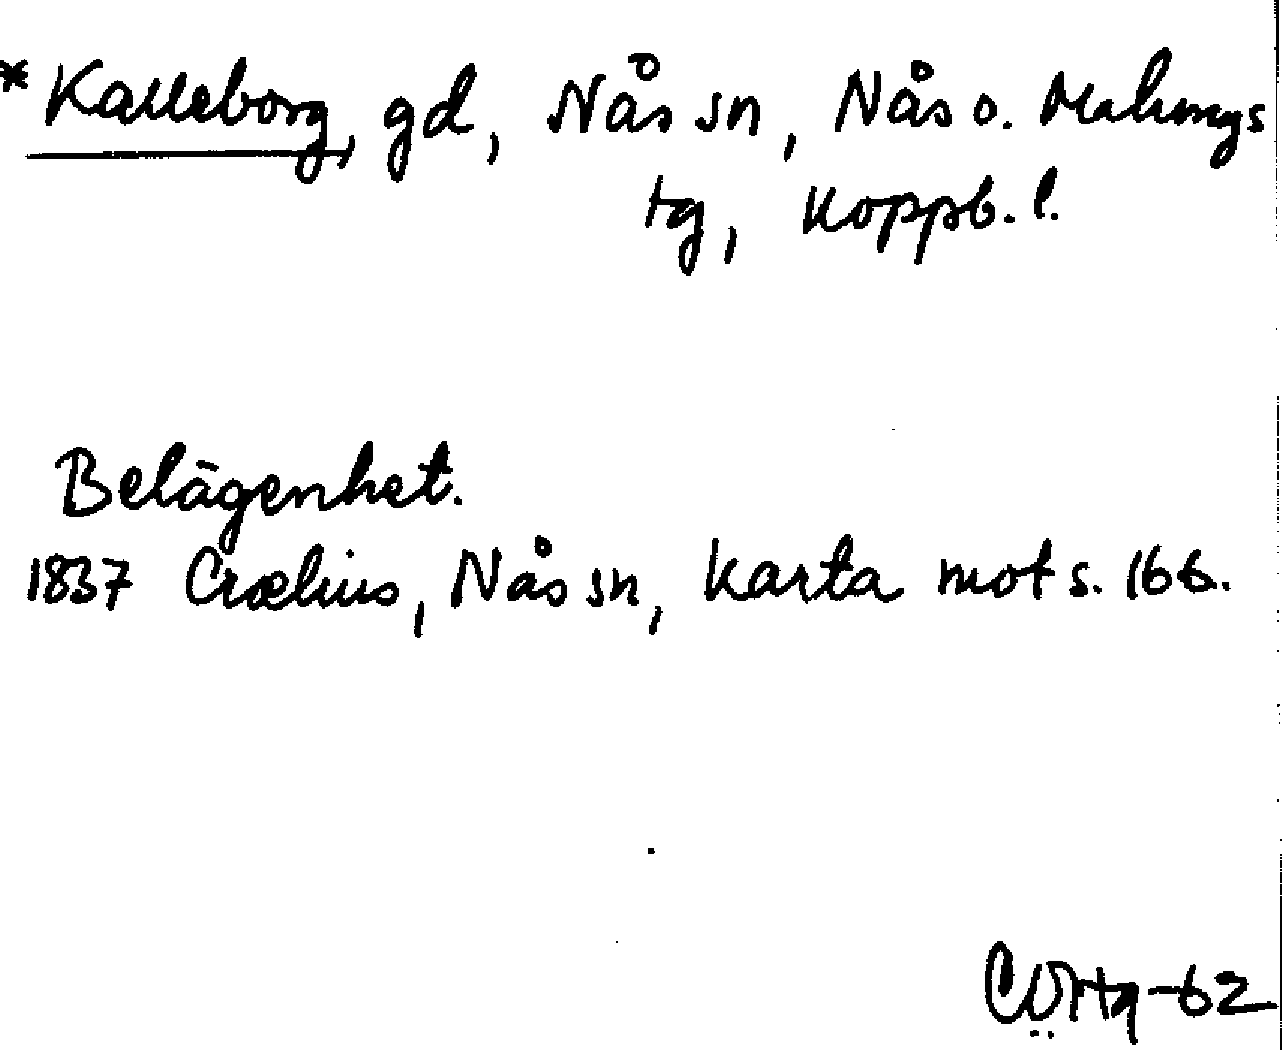 * Kalleborg, gd, Nås sn, Nås o. Malungs
tg, Koppb. l.
Belägenhet.
1837 Crælius, Nås sn, Karta mot s. 166.
-62